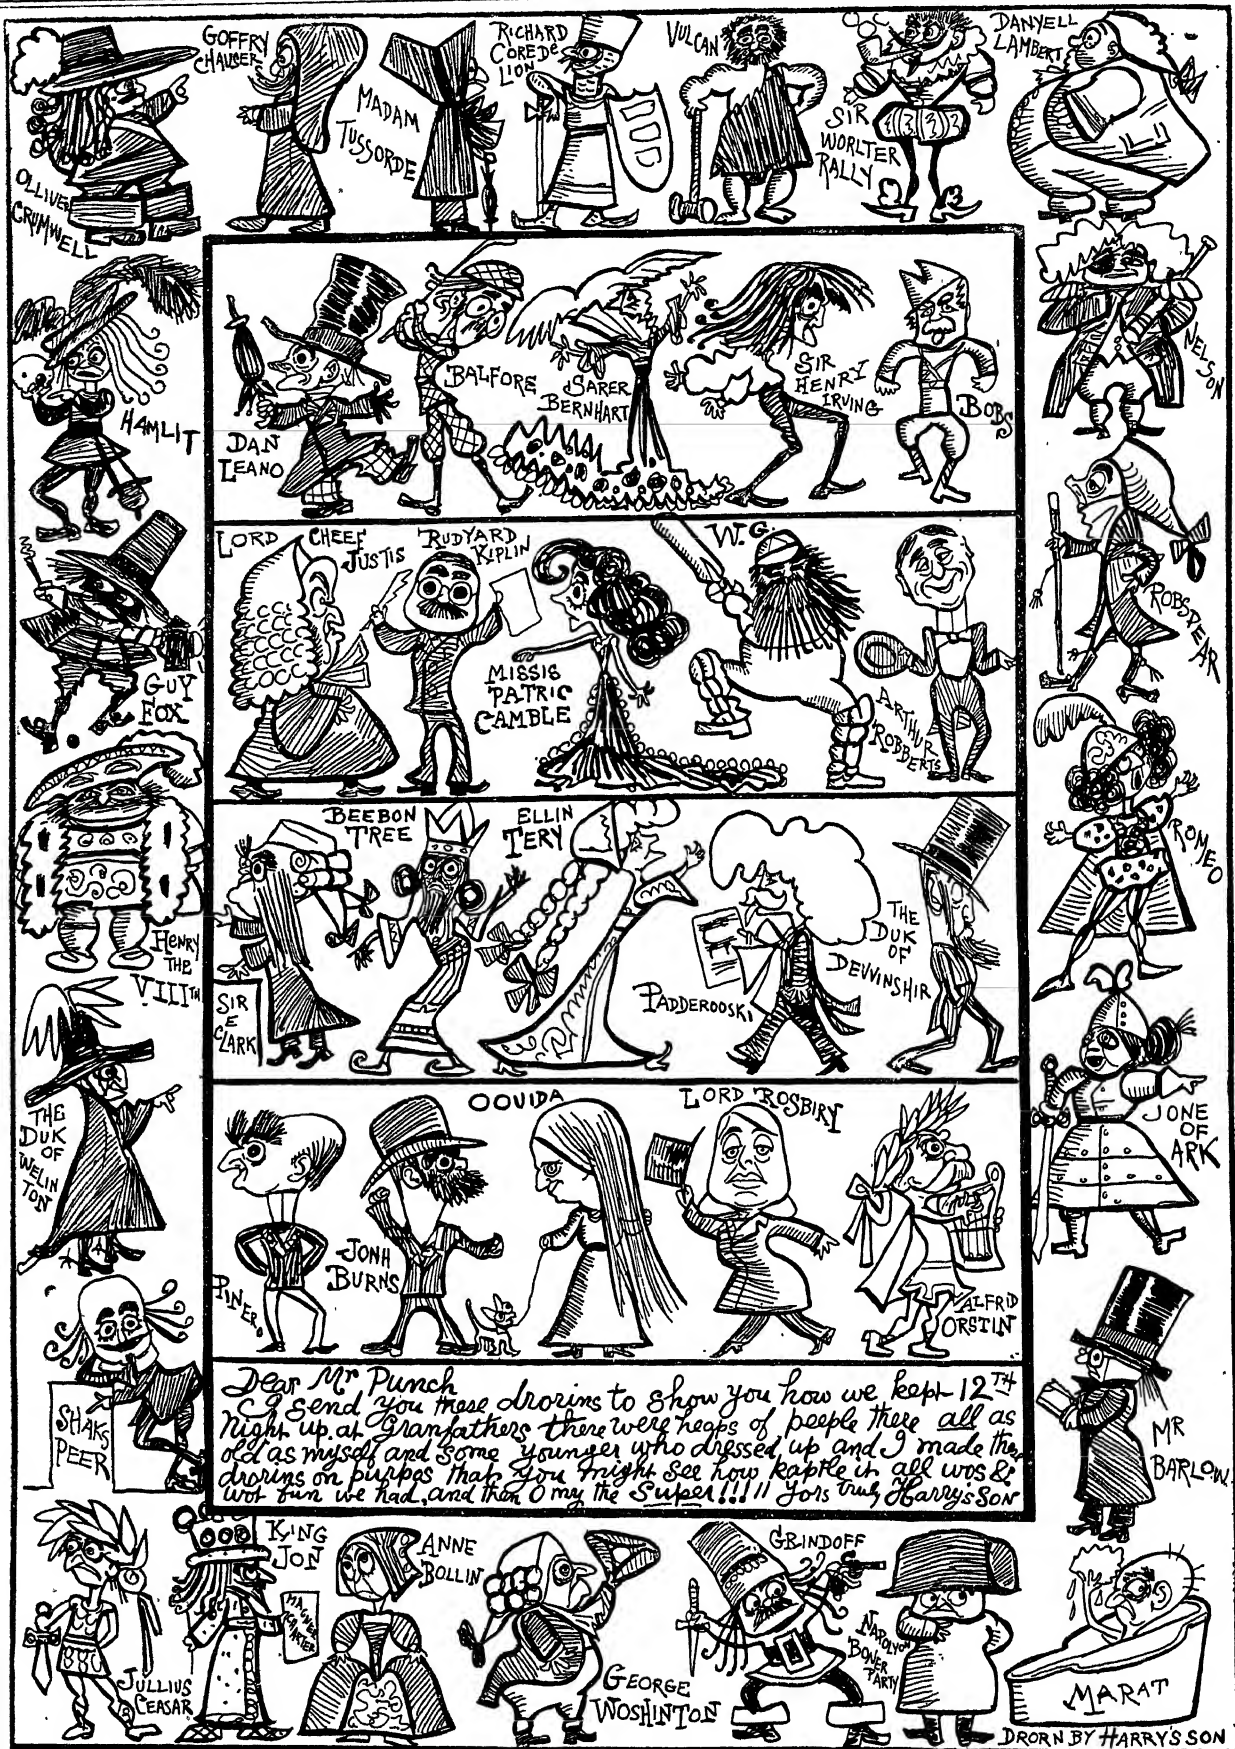 OLLIVER
CRUMWELL
GOFFRY
CHAUSER
MADAM
TUSSORDE
RICHARD
COREDE
LION
VULCAN
SIR
WORLTER
RALLY
DANYELL
LAMBERT
HAMLIT
NELSON
GUY
FOX
ROBSDEAR
HENRY
THE
VIIITH
ROMEO
THE
DUK
OF
WELIN
TON
JONE
OF
ARK
SHAKS
PEER
MR
BARLOW.
DAN
LEANO
BALFORE
SARER
BERNHART
SIR
HENRY
IRVING
BOBS
LORD CHEEF
JUSTIS
RUDYARD
KIPLIN
MISSIS
PATRIC
CAMBLE
W.G.
ARTHUR
ROBBERTS
SIR
E
CLARK
BEEBON
TREE
ELLIN
TERY
PADDEROOSKI
THE
DUK
OF
DEVVINSHIR
PINERO
JONH
BURNS
OOUIDA
LORD ROSBIRY
ALFRID
ORSTIN
Dear Mr Punch
I send you these drorins to show you how we kept 12TH
Night up at Granfathers there were heaps of peeple there all as
old as myself and some younger who dressed up and I made the
drorins on purpos that you might see how kaptle it all wos &
wot fun we had, and then O my the Super!!!!! Yors truly Harry's Son
JULLIUS
CEASAR
KING
JON
MAGNER
CHARTER
ANNE
BOLLIN
GEORGE
WOSHINTON
GRINDOFF
NAPOLYON
BONER
PARTY
MARAT
DRORN BY HARRY'S SON